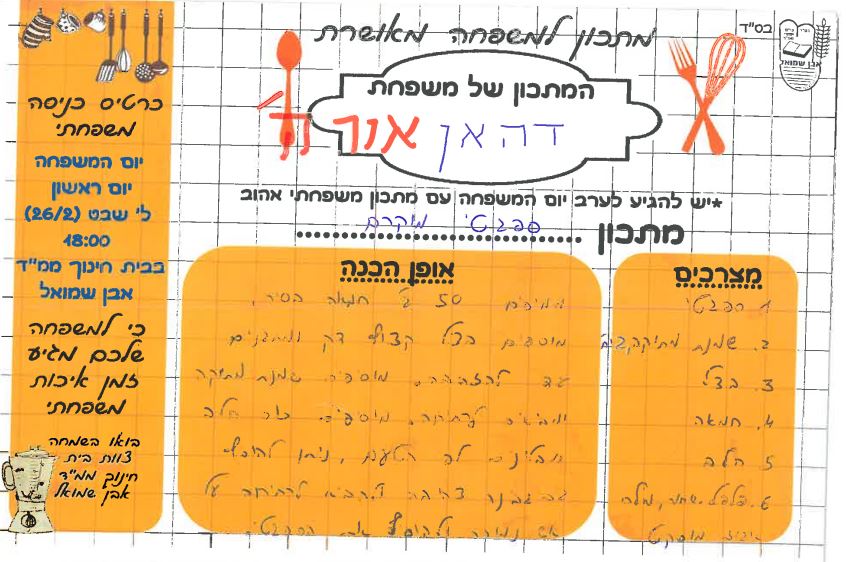 בס"ד
אבן שמואל
מתכון למשפחה מאושרת
המתכון של משפחת
דהאן אור
*יש להגיע לערב יום המשפחה עם מתכון משפחתי אהוב
מתכון ספגטי מוקרם
מצרכים
1. ספגטי
2. שמנת מתוקה
3. בצל
4. חמאה
5. חלב
6. פלפל שחור, מלח
אגוז מוסקט
אופן הכנה
50 ג' חמאה בסיר,
מוסיפים בצל קצוץ דק ומטגנים
עד להזהבה. מוסיפים שמנת מתוקה
ומביאים לרתיחה. מוסיפים כוס חלב
מתבלים לפי הטעם, ניתן להוסיף
גם גבינה צהובה ולהביא לרתיחה על
אש נמוכה ולהוסיף את הספגטי.
כרטיס כניסה
משפחתי
יום המשפחה
יום ראשון
ל' שבט (26/2)
18:00
בבית חינוך ממ"ד
אבן שמואל
כי למשפחה
שלכם מגיע
זמן איכות
משפחתי
בואו בשמחה
צוות בית
חינוך ממ"ד
אבן שמואל